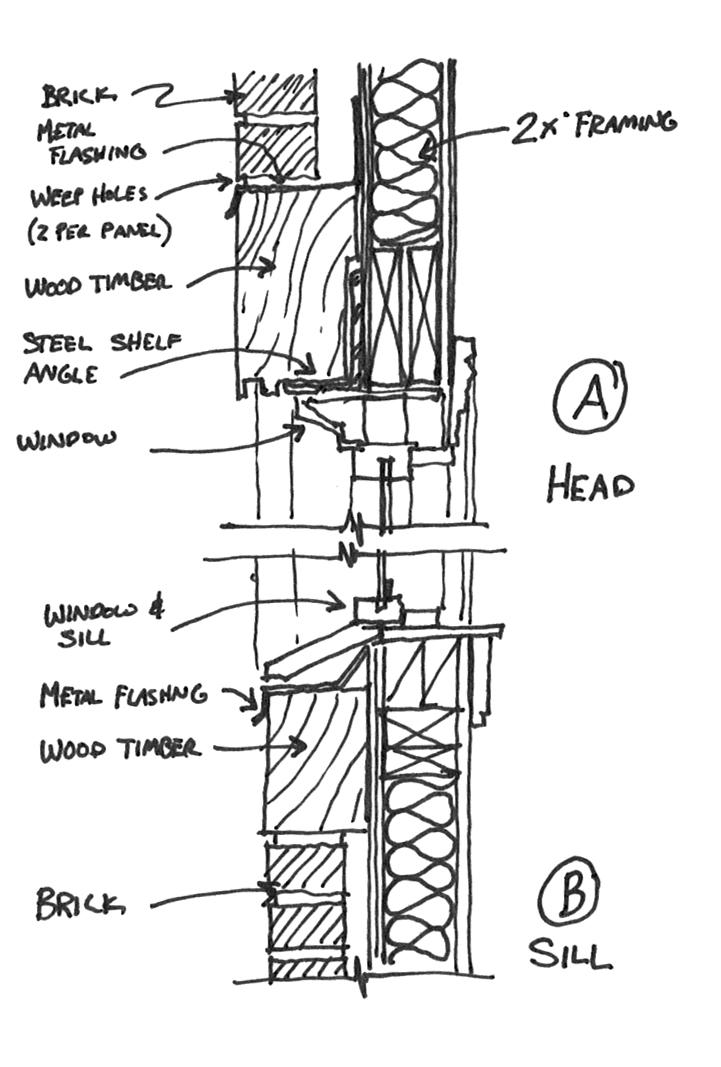 BRICK
METAL
FLASHING
2x" FRAMING
WEEP HOLES
(2 PER PANEL)
WOOD TIMBER
STEEL SHELF
ANGLE
WINDOW
A
HEAD
WINDOW &
SILL
METAL FLASHNG
WOOD TIMBER
BRICK
B
SILL